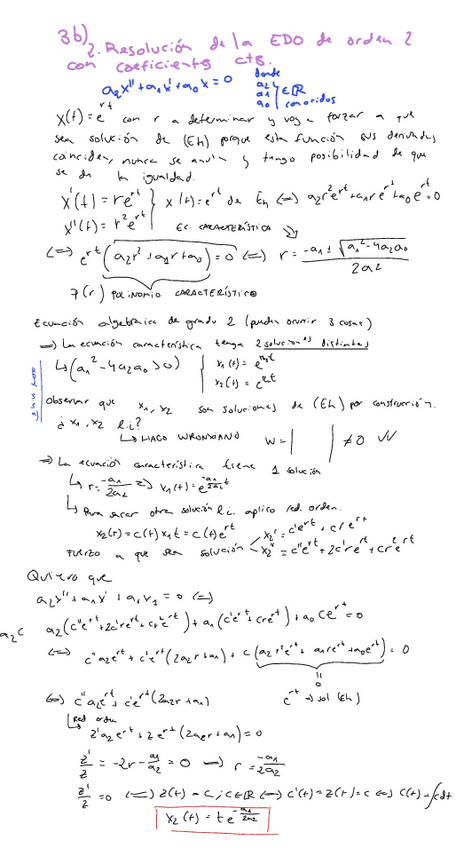 3b)
2. Resolución de la EDO de orden 2
con coeficientes ctes.
a₂x''+a₁x'+a₀x=0 donde a₂ a₁ a₀ } ∈ℝ conocidos
x(t)=e^{rt} con r a determinar y voy a forzar a que
sea solución de (Eh) porque esta función y sus derivadas
coinciden, nunca se anula y tengo posibilidad de que
se da la igualdad.
x'(t)=re^{rt} } x(t)=e^{rt} de Eh (=) a₂r²e^{rt}+a₁re^{rt}+a₀e^{rt}=0
x''(t)=r²e^{rt}
EC. CARACTERÍSTICA
(=) e^{rt}(a₂r²+a₁r+a₀)=0 (=) r = (-a₁±√(a₁²-4a₂a₀))/2a₂
7(r) POLINOMIO CARACTERÍSTICO
Ecuación algebraica de grado 2 (pueden ocurrir 3 cosas)
=) La ecuación característica tenga 2 soluciones distintas
↳(a₁²-4a₂a₀>0) { x₁(t)=e^{r₁t}
x₂(t)=e^{r₂t}
Observar que x₁, x₂ son soluciones de (Eh) por construcción.
¿x₁, x₂ l.i?
↳ HAGO WRONXIANO W=| | ≠0 ✓✓
=) La ecuación característica tiene 1 solución
↳ r=-a₁/2a₂ => x₁(t)=e^{-a₁/2a₂ t}
↳ Para sacar otra solución l.i. aplico red. orden.
x₂(t)=c(t)x₁t=c(t)e^{rt}
Fuerzo a que sea solución < x₂'=c'e^{rt}+cre^{rt}
x₂''=c''e^{rt}+2c're^{rt}+cr²e^{rt}
Quiero que
a₂x''+a₁x'+a₁x₁=0 (=)
a₂c a₂(c''e^{rt}+2c're^{rt}+cr²e^{rt})+a₁(c'e^{rt}+cre^{rt})+a₀ce^{rt}=0
(=) c''a₂e^{rt}+c'e^{rt}(2a₂r+a₁)+c(a₂r²e^{rt}+a₁re^{rt}+a₀e^{rt})=0
=
0
(=) c''a₂e^{rt}+c'e^{rt}(2a₂r+a₁) e^{rt} → sol (Eh)
Red orden
z'a₂e^{rt}+ze^{rt}(2a₂r+a₁)=0
z'/z=-2r-a₁/a₂=0 → r=-a₁/2a₂
z'/z=0 (=) z(t)=c, c∈ℝ (=) c'(t)=z(t)=c (=) c(t)=∫cdt
x₂(t)=te^{-a₁/2a₂}